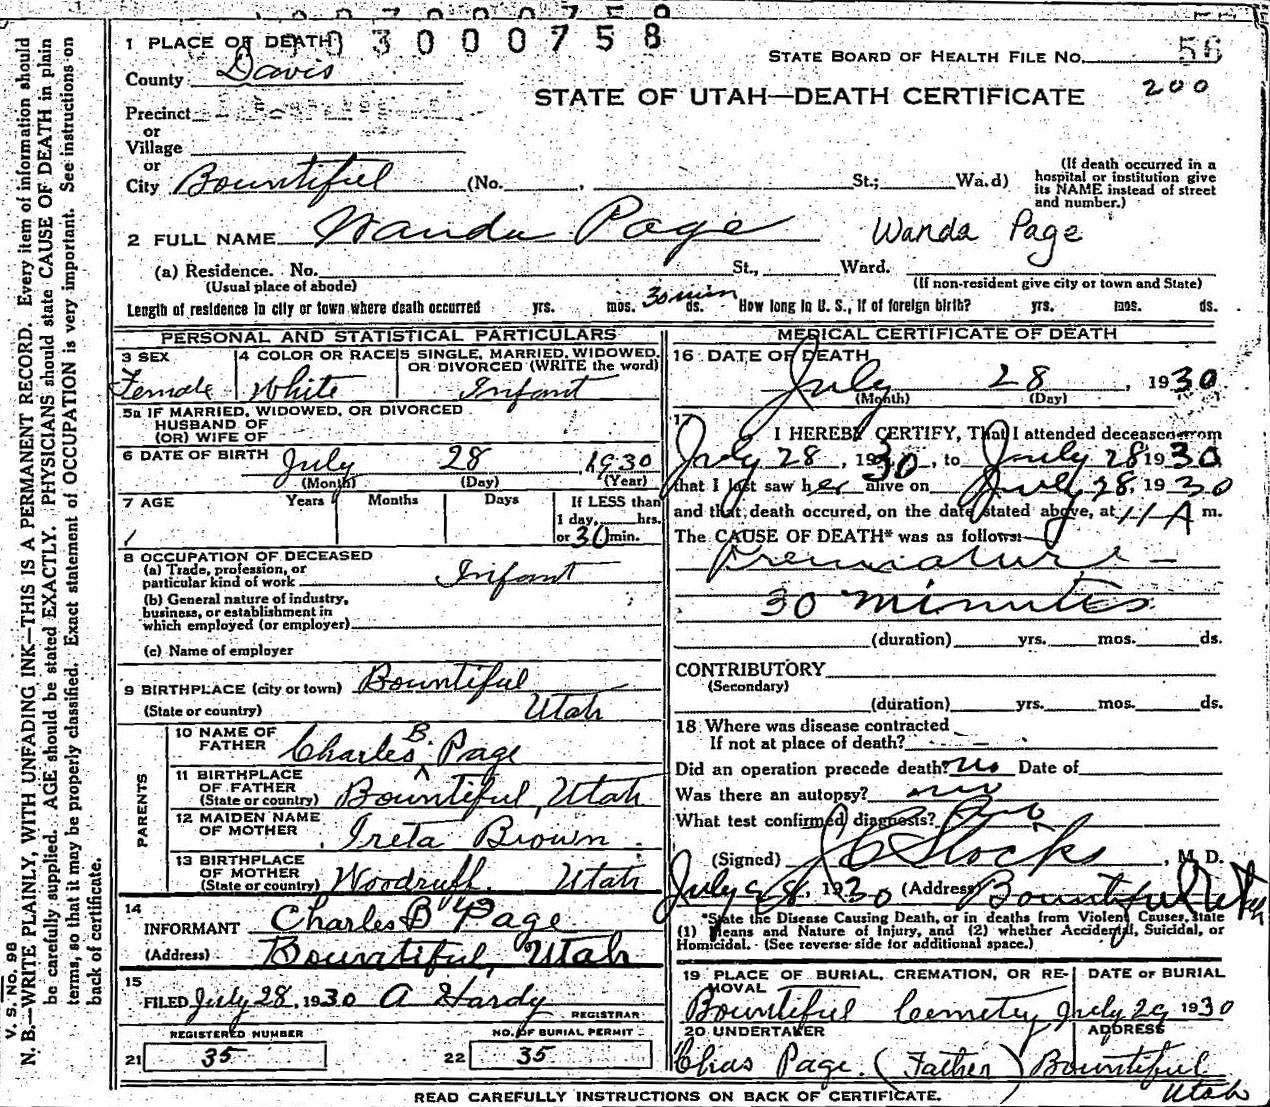 3 0 0 0 7 5 8
1 PLACE OF DEATH
County Davis
STATE BOARD OF HEALTH FILE NO. 56
200
STATE OF UTAH—DEATH CERTIFICATE
Precinct
or
Village
or
City Bountiful (No. , St.; Wa.d)
(If death occurred in a
hospital or institution give
its NAME instead of street
and number.)
2 FULL NAME Wanda Page Wanda Page
(a) Residence. No. St., Ward.
(Usual place of abode) (If non-resident give city or town and State)
Length of residence in city or town where death occurred yrs. mos. 30 min ds. How long in U. S., if of foreign birth? yrs. mos. ds.
PERSONAL AND STATISTICAL PARTICULARS
3 SEX 4 COLOR OR RACE 5 SINGLE, MARRIED, WIDOWED,
OR DIVORCED (WRITE the word)
Female White Infant
5a IF MARRIED, WIDOWED, OR DIVORCED
HUSBAND OF
(OR) WIFE OF
6 DATE OF BIRTH July 28 1930
(Month) (Day) (Year)
7 AGE Years Months Days If LESS than
1 day, hrs.
or 30 min.
8 OCCUPATION OF DECEASED
(a) Trade, profession, or
particular kind of work Infant
(b) General nature of industry,
business, or establishment in
which employed (or employer)
(c) Name of employer
9 BIRTHPLACE (city or town) Bountiful
(State or country) Utah
PARENTS
10 NAME OF
FATHER Charles B. Page
11 BIRTHPLACE
OF FATHER
(State or country) Bountiful, Utah
12 MAIDEN NAME
OF MOTHER Ireta Brown
13 BIRTHPLACE
OF MOTHER
(State or country) Woodruff. Utah
14
INFORMANT Charles B Page
(Address) Bountiful, Utah
15
FILED July 28, 1930 A Hardy
REGISTRAR
REGISTERED NUMBER NO. OF BURIAL PERMIT
21 35 22 35
MEDICAL CERTIFICATE OF DEATH
16 DATE OF DEATH
July 28, 1930
(Month) (Day)
17
I HEREBY CERTIFY, That I attended deceased from
July 28, 1930, to July 28 1930
that I last saw her alive on July 28, 1930
and that death occured, on the date stated above, at 11 A m.
The CAUSE OF DEATH* was as follows:
Premature —
30 minutes
(duration) yrs. mos. ds.
CONTRIBUTORY
(Secondary)
(duration) yrs. mos. ds.
18 Where was disease contracted
If not at place of death?
Did an operation precede death? no Date of
Was there an autopsy? no
What test confirmed diagnosis?
(Signed) J C Stocks, M. D.
July 28, 1930 (Address) Bountiful Utah
*State the Disease Causing Death, or in deaths from Violent Causes, state
(1) Means and Nature of Injury, and (2) whether Accidental, Suicidal, or
Homicidal. (See reverse side for additional space.)
19 PLACE OF BURIAL, CREMATION, OR RE-
MOVAL DATE OF BURIAL
Bountiful Cemetery July 29 1930
20 UNDERTAKER ADDRESS
Chas Page. (Father) Bountiful
Utah
READ CAREFULLY INSTRUCTIONS ON BACK OF CERTIFICATE.
V. S. No. 98
N. B.—WRITE PLAINLY, WITH UNFADING INK—THIS IS A PERMANENT RECORD. Every item of information should
be carefully supplied. AGE should be stated EXACTLY. PHYSICIANS should state CAUSE OF DEATH in plain
terms, so that it may be properly classified. Exact statement of OCCUPATION is very important. See instructions on
back of certificate.